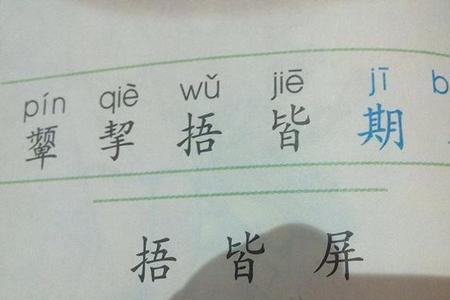 pín qiè wǔ jiē jī
颦 挈 捂 皆 期
捂 皆 屏